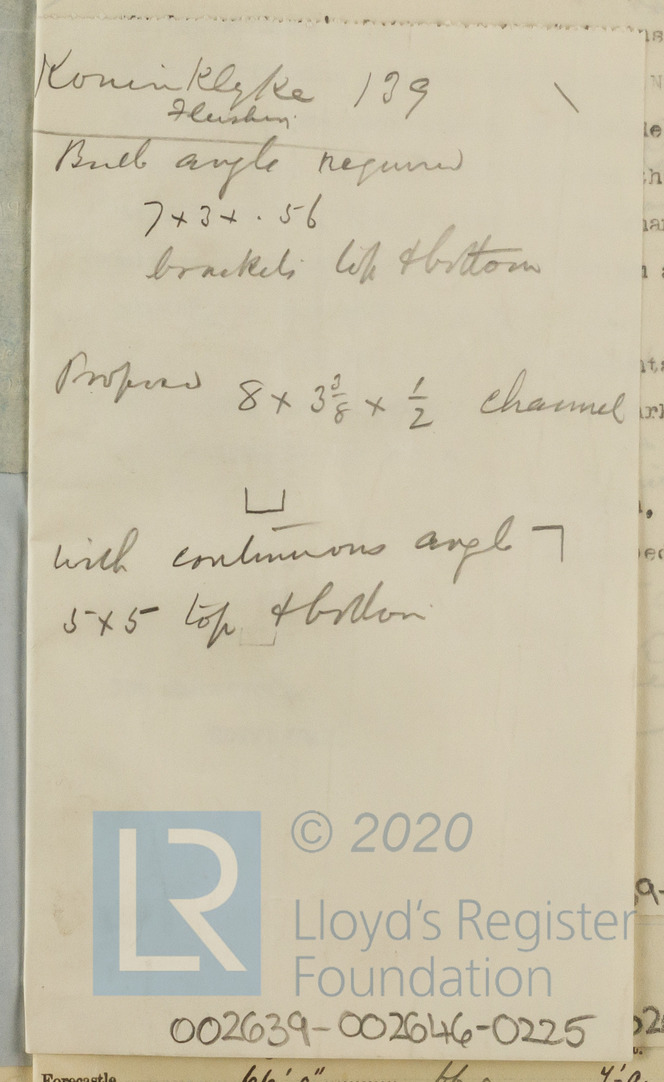 Koninklyke 139
Flushing
Bulb angle required
7 x 3 x .56
brackets top & bottom
Proposed 8 x 3 3/8 x 1/2 channel
with continuous angle
5 x 5 top & bottom
LR
© 2020
Lloyd's Register
Foundation
002639-002646-0225
Forecastle